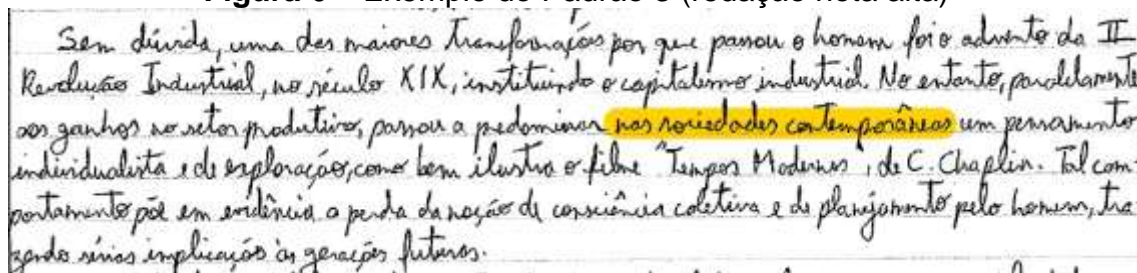 Sem dúvida, uma das maiores transformações por que passou o homem foi o advento da II
Revolução Industrial, no século XIX, instituindo o capitalismo industrial. No entanto, paralelamente
aos ganhos no setor produtivo, passou a predominar nas sociedades contemporâneas um pensamento
individualista e de exploração, como bem ilustra o filme "Tempos Modernos", de C. Chaplin. Tal com
portamento põe em evidência a perda da noção de consciência coletiva e de planejamento pelo homem, tra
zendo sérias implicações às gerações futuras.